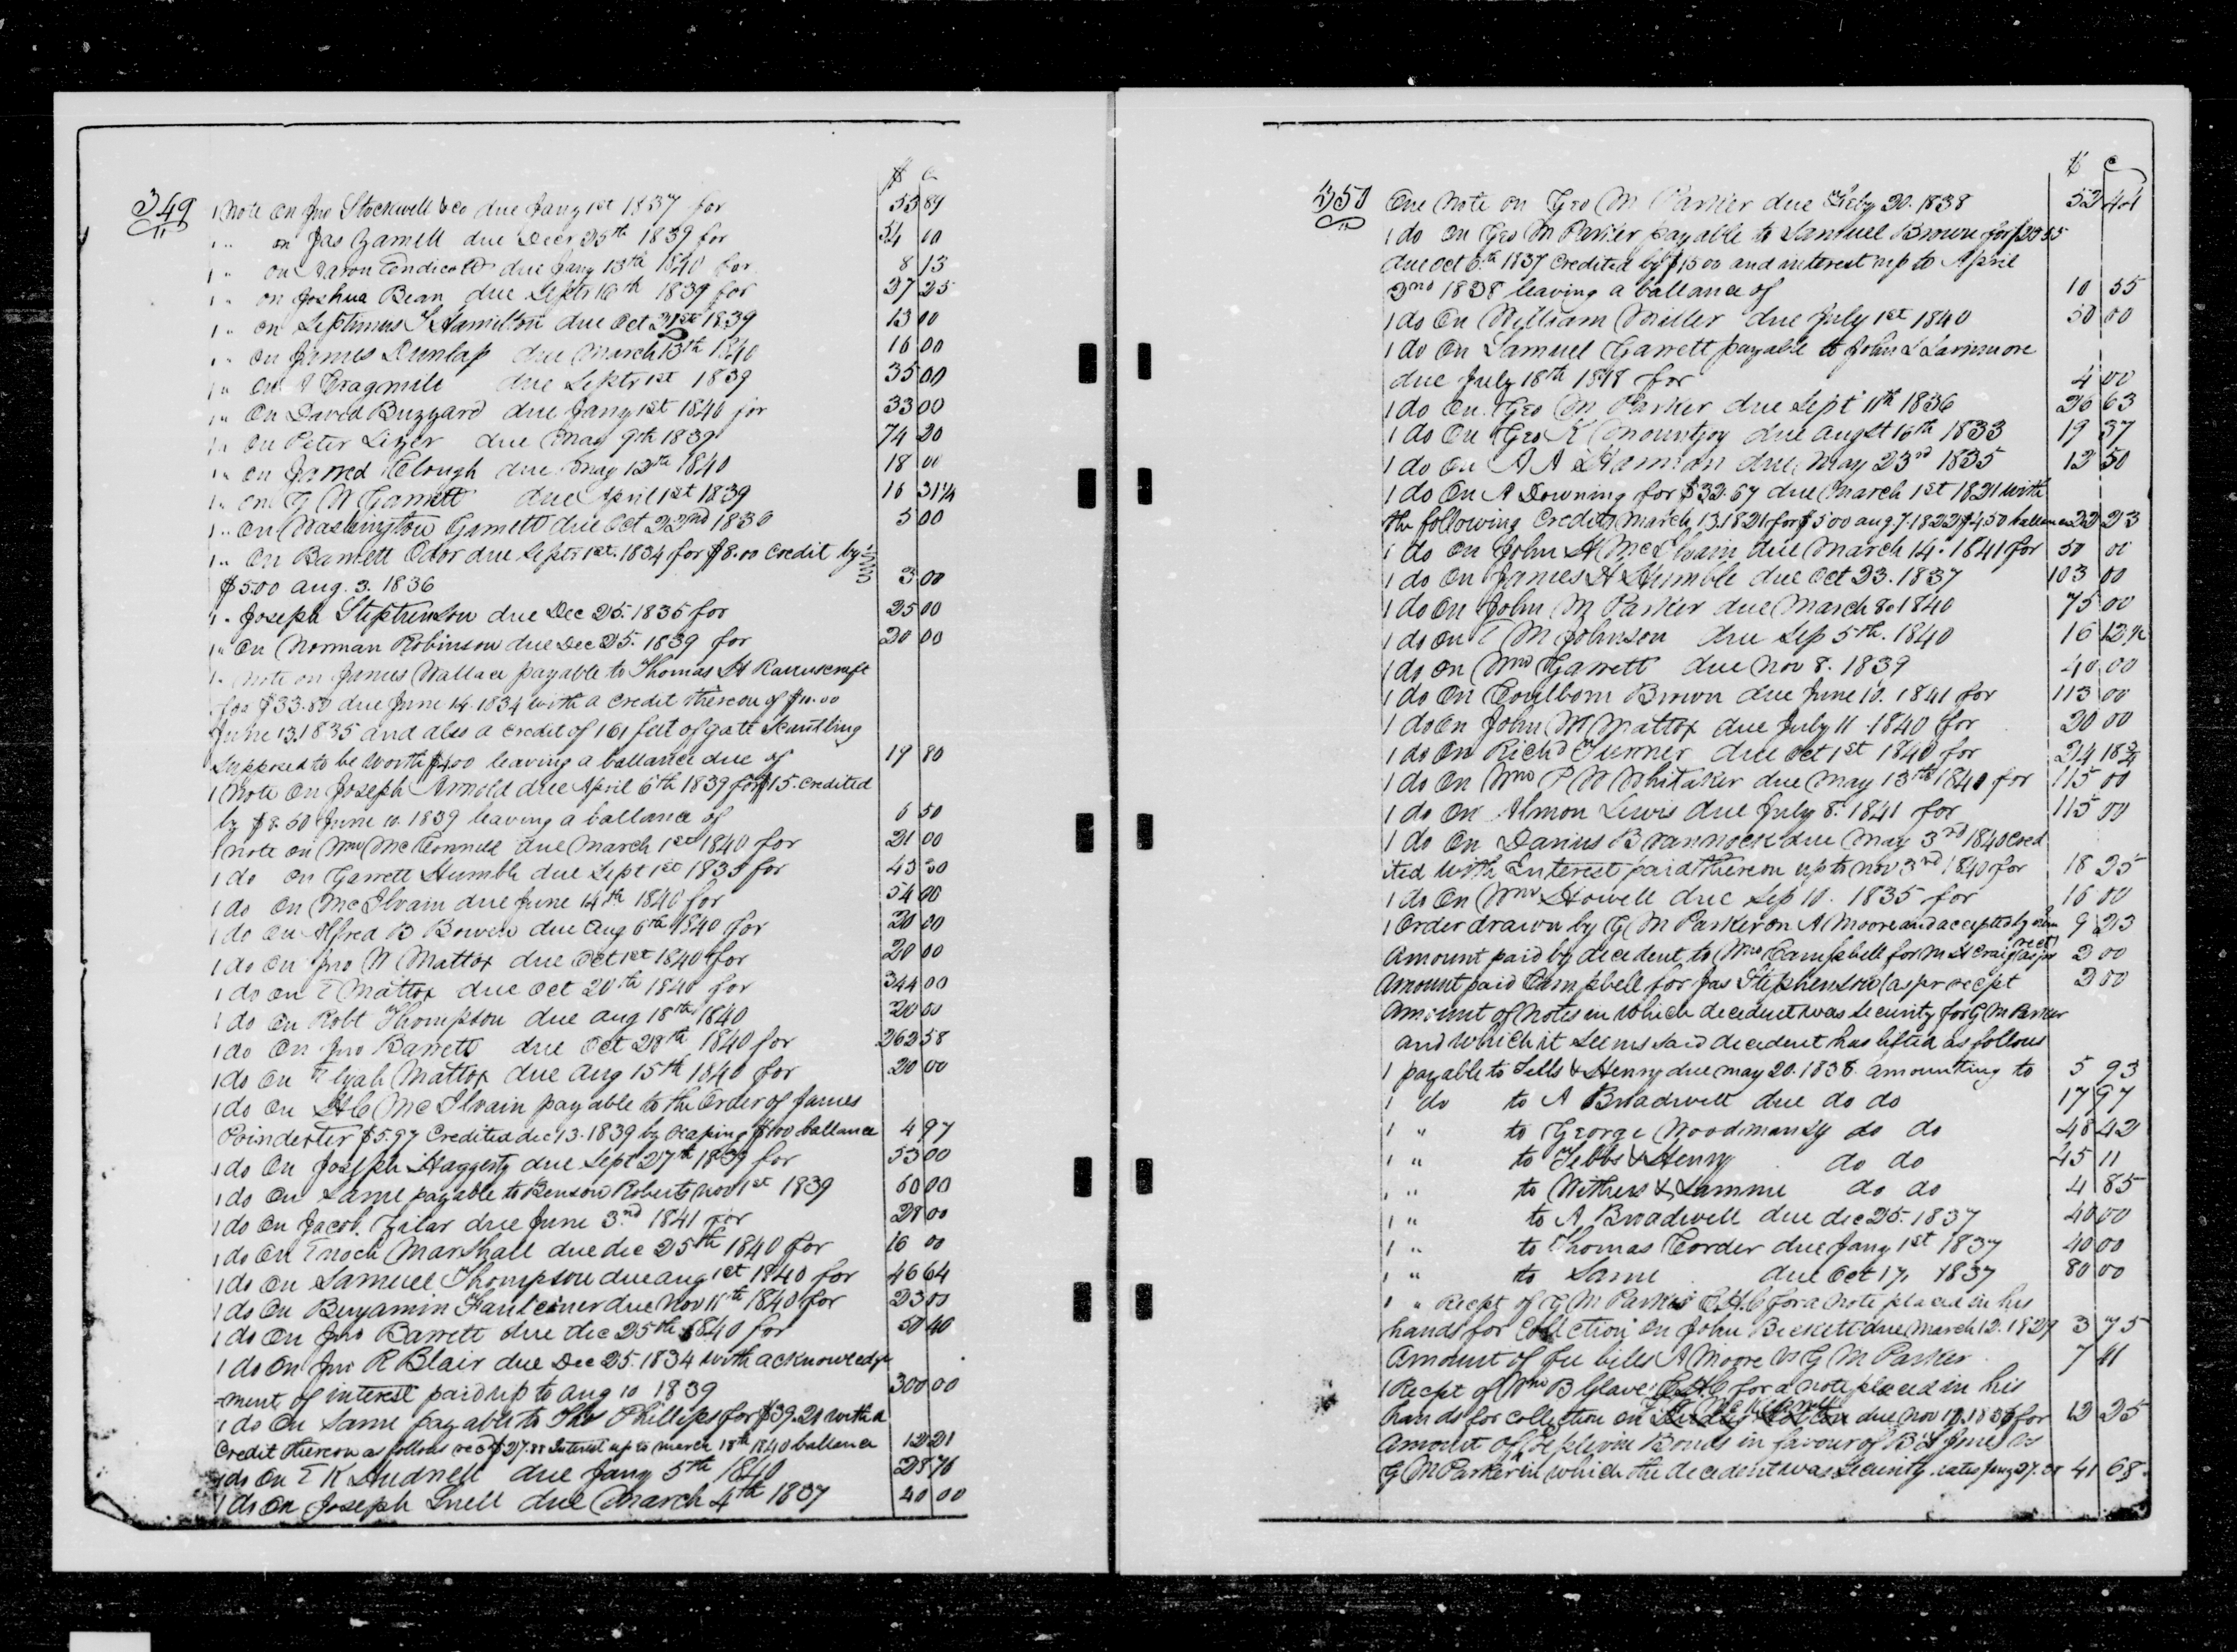 $ c
349 1 Note on Jno Stockwell & co due Jany 1st 1837 for 53 89
1 " on Jas Garnett due Decr 25th 1839 for 54 00
1 " on Aaron Endicott due Jany 13th 1840 for 8 13
1 " on Joshua Bean due Septr 16th 1839 for 37 25
1 " on Septimus S Hamilton due Oct 31st 1839 13 00
1 " on James Dunlap due March 13th 1840 16 00
1 " on A Cragmile due Septr 1st 1839 35 00
1 " On David Buzzard due Jany 1st 1840 for 33 00
1 " on Peter Lizer due May 9th 1839 74 20
1 " on Jarred Clough due May 12th 1840 18 00
1 " on G W Garnett due April 1st 1839 16 31¼
1 " on Washington Garnett due Oct 22nd 1836 5 00
1 " On Barnett Odor due Septr 1st 1834 for $8.00 Credit by
$5.00 aug. 3. 1836 3 00
1 " Joseph Stephenson due Dec 25. 1835 for 25 00
1 " On Norman Robinson due Dec 25. 1839 for 20 00
1 " Note on James Wallace payable to Thomas H
for $33.80 due June 14. 1834 with a credit thereon of $10.00
June 13. 1835 and also a credit of 161 feet of gate scantling
supposed to be worth $4.00 leaving a ballance due of 19 80
1 Note On Joseph Arnold due April 6th 1839 for $15. credited
by $8.50 June 10. 1839 leaving a ballance of 6 50
1 note on Wm McConnell due March 1st 1840 for 21 00
1 do on Garrett Humble due Sept 1st 1835 for 43 30
1 do on McIlvain due June 14th 1840 for 54 00
1 do on Alfred B Bowen due Aug 6th 1840 for 20 00
1 do on Jno W Mattox due Oct 1st 1840 for 20 00
1 do on E Mattox due Oct 20th 1840 for 344 00
1 do on Robt Thompson due aug 18th 1840 20 00
1 do On Jno Barrett due Oct 28th 1840 for 262 58
1 do On Elijah Mattox due Aug 15th 1840 for 20 00
1 do on H C McIlvain payable to the Order of James
Poindexter $5.97 Credited dec 13. 1839 by reaping $1.00 ballance 4 97
1 do On Joseph Haggerty due Sept 27th 1839 for 53 00
1 do On Same payable to Benson Roberts nov 1st 1839 60 00
1 do On Jacob Zilar due June 3rd 1841 for 28 00
1 do On Enoch Marshall due dec 25th 1840 for 16 00
1 do on Samuel Thompson due aug 1st 1840 for 46 64
1 do On Benjamin Faulconer due Nov 11th 1840 for 23 00
1 do On Jno Barrett due dec 25th 1840 for 50 40
1 do On Jno R Blair due Dec 25. 1834 with acknowledge
-ment of interest paid up to aug 10 1839 300 00
1 do On Same payable to Thos Phillips for $39.21 with a
credit thereon as follows recd $27.88 Interest up to march 18th 1840 ballance 12 21
1 do On E K Hudnell due Jany 5th 1840 25 76
1 do On Joseph Snell due March 4th 1837 40 00
$ c
350 One Note on Geo M Parker due Feby 20. 1838 52 44
1 do On Geo M Parker payable to Samuel Brown for $23 55
due Oct 5th 1837 Credited by $15 00 and interest up to April
2nd 1838 leaving a ballance of 10 55
1 do On William Miller due July 1st 1840 50 00
1 do On Samuel Garrett payable to John L Larimore
due July 18th 1848 for 4 00
1 do On Geo M Parker due Sept 11th 1836 26 63
1 do On Geo K Mountjoy due augst 16th 1833 19 37
1 do on A A Hannan due May 23rd 1835 12 50
1 do On A Downing for $32.67 due March 1st 1821 with
the following Credits March 13. 1821 for $5 00 aug. 7. 1822 $4.50 ballance 22 23
1 do on John H McIlvain due March 14. 1841 for 50 00
1 do On James H Humble due Oct 23. 1837 103 00
1 do On John M Parker due March 8. 1840 75 00
1 do on T M Johnson due Sep 5th. 1840 16 12½
1 do on Wm Garrett due Nov 8. 1839 40 00
1 do On Brown due June 10. 1841 for 113 00
1 do On John W Mattox due July 11. 1840 for 20 00
1 do On Richd Turner due Oct 1st 1840 for 24 18¾
1 do On Wm P W Whitaker due May 13th 1840 for 115 00
1 do on Almon Lewis due July 8. 1841 for 115 00
1 do On Darius Brannock due May 3rd 1840 Cred
ited with Interest paid thereon up to nov 3rd 1840 for 18 25
1 do On Wm Howell due Sep 10. 1835 for 16 00
1 Order drawn by G M Parker on A Moore and accepted by him 9 23
Amount paid by decedent to Wm Campbell for M H Craig (as pr rect) 2 00
Amount paid Campbell for Jas Stephenson (as pr recpt 2 00
Amount of Notes in which decedent was Security for G M Parker
and which it seems said decedent has lifted as follows
1 payable to Tells & Henry due may 20. 1838. amounting to 5 93
1 do to A Broadwell due do do 17 97
1 " to George Woodmansy do do 48 42
1 " to Tebbs & Henry do do 45 11
1 " to Withers & Lamme do do 4 85
1 " to A Broadwell due dec 25. 1837 40 00
1 " to Thomas Corder due Jany 1st 1837 40 00
1 " to Same due Oct 17. 1837 80 00
1 " Recpt of G M Parker C.H.C for a note placed in his
hands for Collection on John Beckett due March 12. 1829 3 75
Amount of fee bills A Moore vs G M Parker 7 41
1 Recpt of Wm B Glave C.H.C for a note placed in his
hands for collection on due Nov 17. 1836 for 12 25
Amount of Replevin Bonds in favour of B L Jones vs
G M Parker in which the decedent was Security dated Jany 27. 41 68